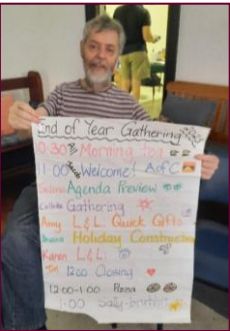 End of Year Gathering
Morning Tea
11:00 Welcome! AofC
Agenda Preview
Gathering
Amy L&L: Quick Gifts
Holiday Construction
Karen L&L:
12:00 Closing
12:00-1:00 Pizza
1:00